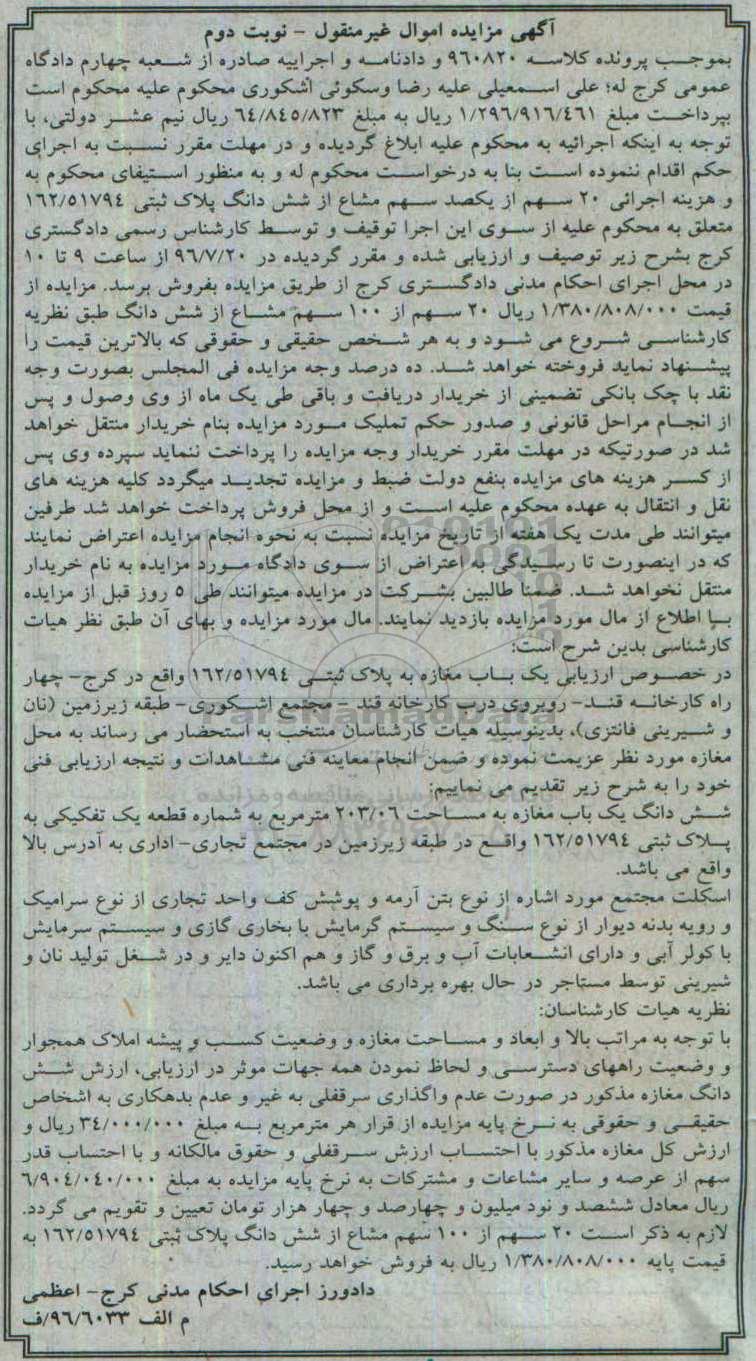 آگهی مزایده اموال غیرمنقول - نوبت دوم
بموجب پرونده کلاسه ۹۶۰۸۲۰ و دادنامه و اجراییه صادره از شعبه چهارم دادگاه
عمومی کرج له؛ علی اسمعیلی علیه رضا وسکوئی اشکوری محکوم علیه محکوم است
بپرداخت مبلغ ۱/۲۹۶/۹۱۶/٤٦۱ ریال به مبلغ ٦٤/۸٤٥/۸۲۳ ریال نیم عشر دولتی، با
توجه به اینکه اجرائیه به محکوم علیه ابلاغ گردیده و در مهلت مقرر نسبت به اجرای
حکم اقدام ننموده است بنا به درخواست محکوم له و به منظور استیفای محکوم به
و هزینه اجرائی ۲۰ سهم از یکصد سهم مشاع از شش دانگ پلاک ثبتی ۱٦۲/٥۱۷۹٤
متعلق به محکوم علیه از سوی این اجرا توقیف و توسط کارشناس رسمی دادگستری
کرج بشرح زیر توصیف و ارزیابی شده و مقرر گردیده در ۹٦/۷/۲۰ از ساعت ۹ تا ۱۰
در محل اجرای احکام مدنی دادگستری کرج از طریق مزایده بفروش برسد. مزایده از
قیمت ۱/۳۸۰/۸۰۸/۰۰۰ ریال ۲۰ سهم از ۱۰۰ سهم مشاع از شش دانگ طبق نظریه
کارشناسی شروع می شود و به هر شخص حقیقی و حقوقی که بالاترین قیمت را
پیشنهاد نماید فروخته خواهد شد. ده درصد وجه مزایده فی المجلس بصورت وجه
نقد با چک بانکی تضمینی از خریدار دریافت و باقی طی یک ماه از وی وصول و پس
از انجام مراحل قانونی و صدور حکم تملیک مورد مزایده بنام خریدار منتقل خواهد
شد در صورتیکه در مهلت مقرر خریدار وجه مزایده را پرداخت ننماید سپرده وی پس
از کسر هزینه های مزایده بنفع دولت ضبط و مزایده تجدید میگردد کلیه هزینه های
نقل و انتقال به عهده محکوم علیه است و از محل فروش پرداخت خواهد شد طرفین
میتوانند طی مدت یک هفته از تاریخ مزایده نسبت به نحوه انجام مزایده اعتراض نمایند
که در اینصورت تا رسیدگی به اعتراض از سوی دادگاه مورد مزایده به نام خریدار
منتقل نخواهد شد. ضمنا طالبین بشرکت در مزایده میتوانند طی ٥ روز قبل از مزایده
با اطلاع از مال مورد مزایده بازدید نمایند. مال مورد مزایده و بهای آن طبق نظر هیات
کارشناسی بدین شرح است:
در خصوص ارزیابی یک باب مغازه به پلاک ثبتی ۱٦۲/٥۱۷۹٤ واقع در کرج- چهار
راه کارخانه قند- روبروی درب کارخانه قند - مجتمع اشکوری- طبقه زیرزمین (نان
و شیرینی فانتزی)، بدینوسیله هیات کارشناسان منتخب به استحضار می رساند به محل
مغازه مورد نظر عزیمت نموده و ضمن انجام معاینه فنی مشاهدات و نتیجه ارزیابی فنی
خود را به شرح زیر تقدیم می نماییم:
شش دانگ یک باب مغازه به مساحت ۲۰۳/۰٦ مترمربع به شماره قطعه یک تفکیکی به
پلاک ثبتی ۱٦۲/٥۱۷۹٤ واقع در طبقه زیرزمین در مجتمع تجاری- اداری به آدرس بالا
واقع می باشد.
اسکلت مجتمع مورد اشاره از نوع بتن آرمه و پوشش کف واحد تجاری از نوع سرامیک
و رویه بدنه دیوار از نوع سنگ و سیستم گرمایش با بخاری گازی و سیستم سرمایش
با کولر آبی و دارای انشعابات آب و برق و گاز و هم اکنون دایر و در شغل تولید نان و
شیرینی توسط مستاجر در حال بهره برداری می باشد.
نظریه هیات کارشناسان:
با توجه به مراتب بالا و ابعاد و مساحت مغازه و وضعیت کسب و پیشه املاک همجوار
و وضعیت راههای دسترسی و لحاظ نمودن همه جهات موثر در ارزیابی، ارزش شش
دانگ مغازه مذکور در صورت عدم واگذاری سرقفلی به غیر و عدم بدهکاری به اشخاص
حقیقی و حقوقی به نرخ پایه مزایده از قرار هر مترمربع به مبلغ ۳٤/۰۰۰/۰۰۰ ریال و
ارزش کل مغازه مذکور با احتساب ارزش سرقفلی و حقوق مالکانه و با احتساب قدر
سهم از عرصه و سایر مشاعات و مشترکات به نرخ پایه مزایده به مبلغ ٦/۹۰٤/۰٤۰/۰۰۰
ریال معادل ششصد و نود میلیون و چهارصد و چهار هزار تومان تعیین و تقویم می گردد.
لازم به ذکر است ۲۰ سهم از ۱۰۰ سهم مشاع از شش دانگ پلاک ثبتی ۱٦۲/٥۱۷۹٤ به
قیمت پایه ۱/۳۸۰/۸۰۸/۰۰۰ ریال به فروش خواهد رسید.
دادورز اجرای احکام مدنی کرج- اعظمی
م الف ۹٦/٦۰۳۳/ف
ParsNamadData